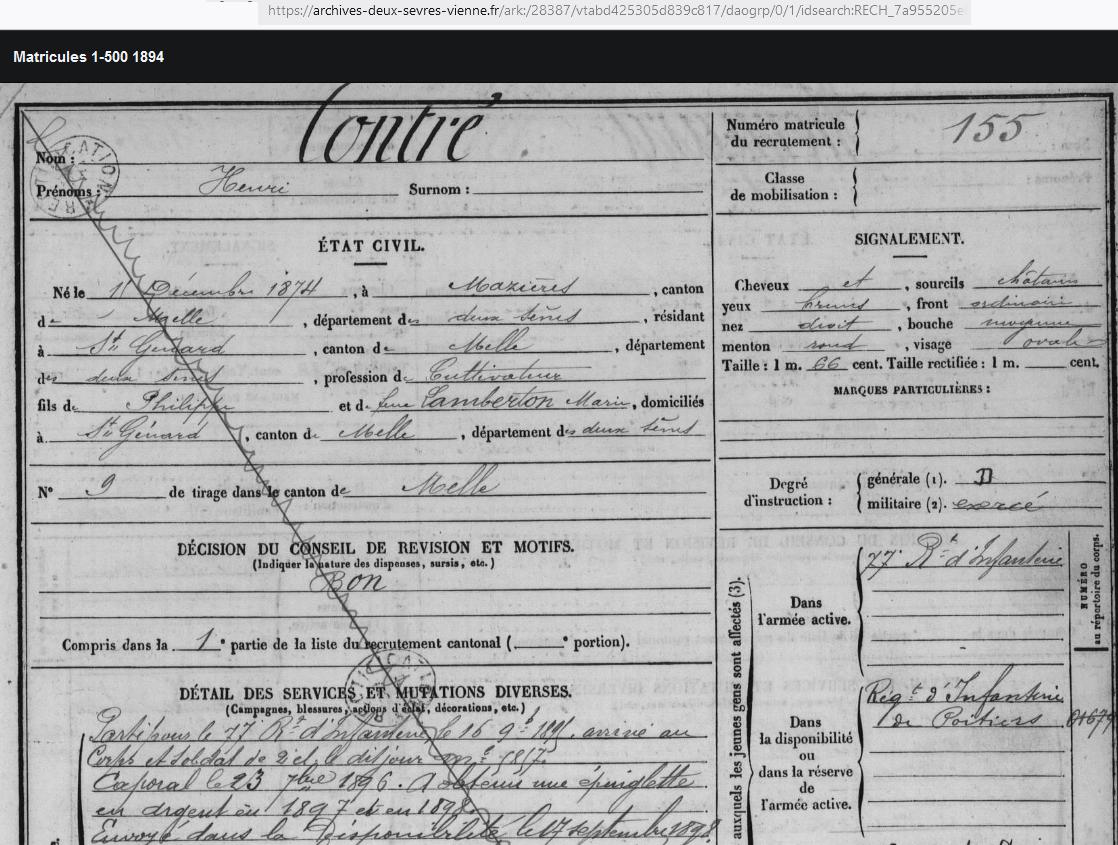 https://archives-deux-sevres-vienne.fr/ark:/28387/vtabd425305d839c817/daogrp/0/1/idsearch:RECH_7a955205e
Matricules 1-500 1894
Nom : Contré
Prénoms : Henri Surnom :
Numéro matricule du recrutement : 155
Classe de mobilisation :
ÉTAT CIVIL.
Né le 1 Décembre 1874, à Mazières, canton
de Melle, département des deux sèvres, résidant
à St Génard, canton de Melle, département
des deux sèvres, profession de Cultivateur
fils de Philippe et de feue Lamberton Marie, domiciliés
à St Génard, canton de Melle, département des deux sèvres
N° 9 de tirage dans le canton de Melle
SIGNALEMENT.
Cheveux et, sourcils châtains
yeux bruns, front ordinaire
nez droit, bouche moyenne
menton rond, visage ovale
Taille : 1 m. 66 cent. Taille rectifiée : 1 m. cent.
MARQUES PARTICULIÈRES :
Degré d'instruction : générale (1).
militaire (2). exercé
DÉCISION DU CONSEIL DE REVISION ET MOTIFS.
(Indiquer la nature des dispenses, sursis, etc.)
Bon
Compris dans la 1e partie de la liste du recrutement cantonal ( e portion).
DÉTAIL DES SERVICES ET MUTATIONS DIVERSES.
(Campagnes, blessures, actions d'éclat, décorations, etc.)
Parti pour le 77 Rt d'Infanterie le 16 9bre 1895, arrivé au
Corps et soldat de 2e cl. ledit jour
Caporal le 23 7bre 1896. A obtenu une épinglette
en argent en 1897 et en 1898
Envoyé dans la Disponibilité le 17 septembre 1898
auxquels les jeunes gens sont affectés (3).
Dans l'armée active.
77e Rt d'Infanterie
Dans la disponibilité ou dans la réserve de l'armée active.
Régt d'Infanterie
de Poitiers
NUMÉRO au répertoire du corps.